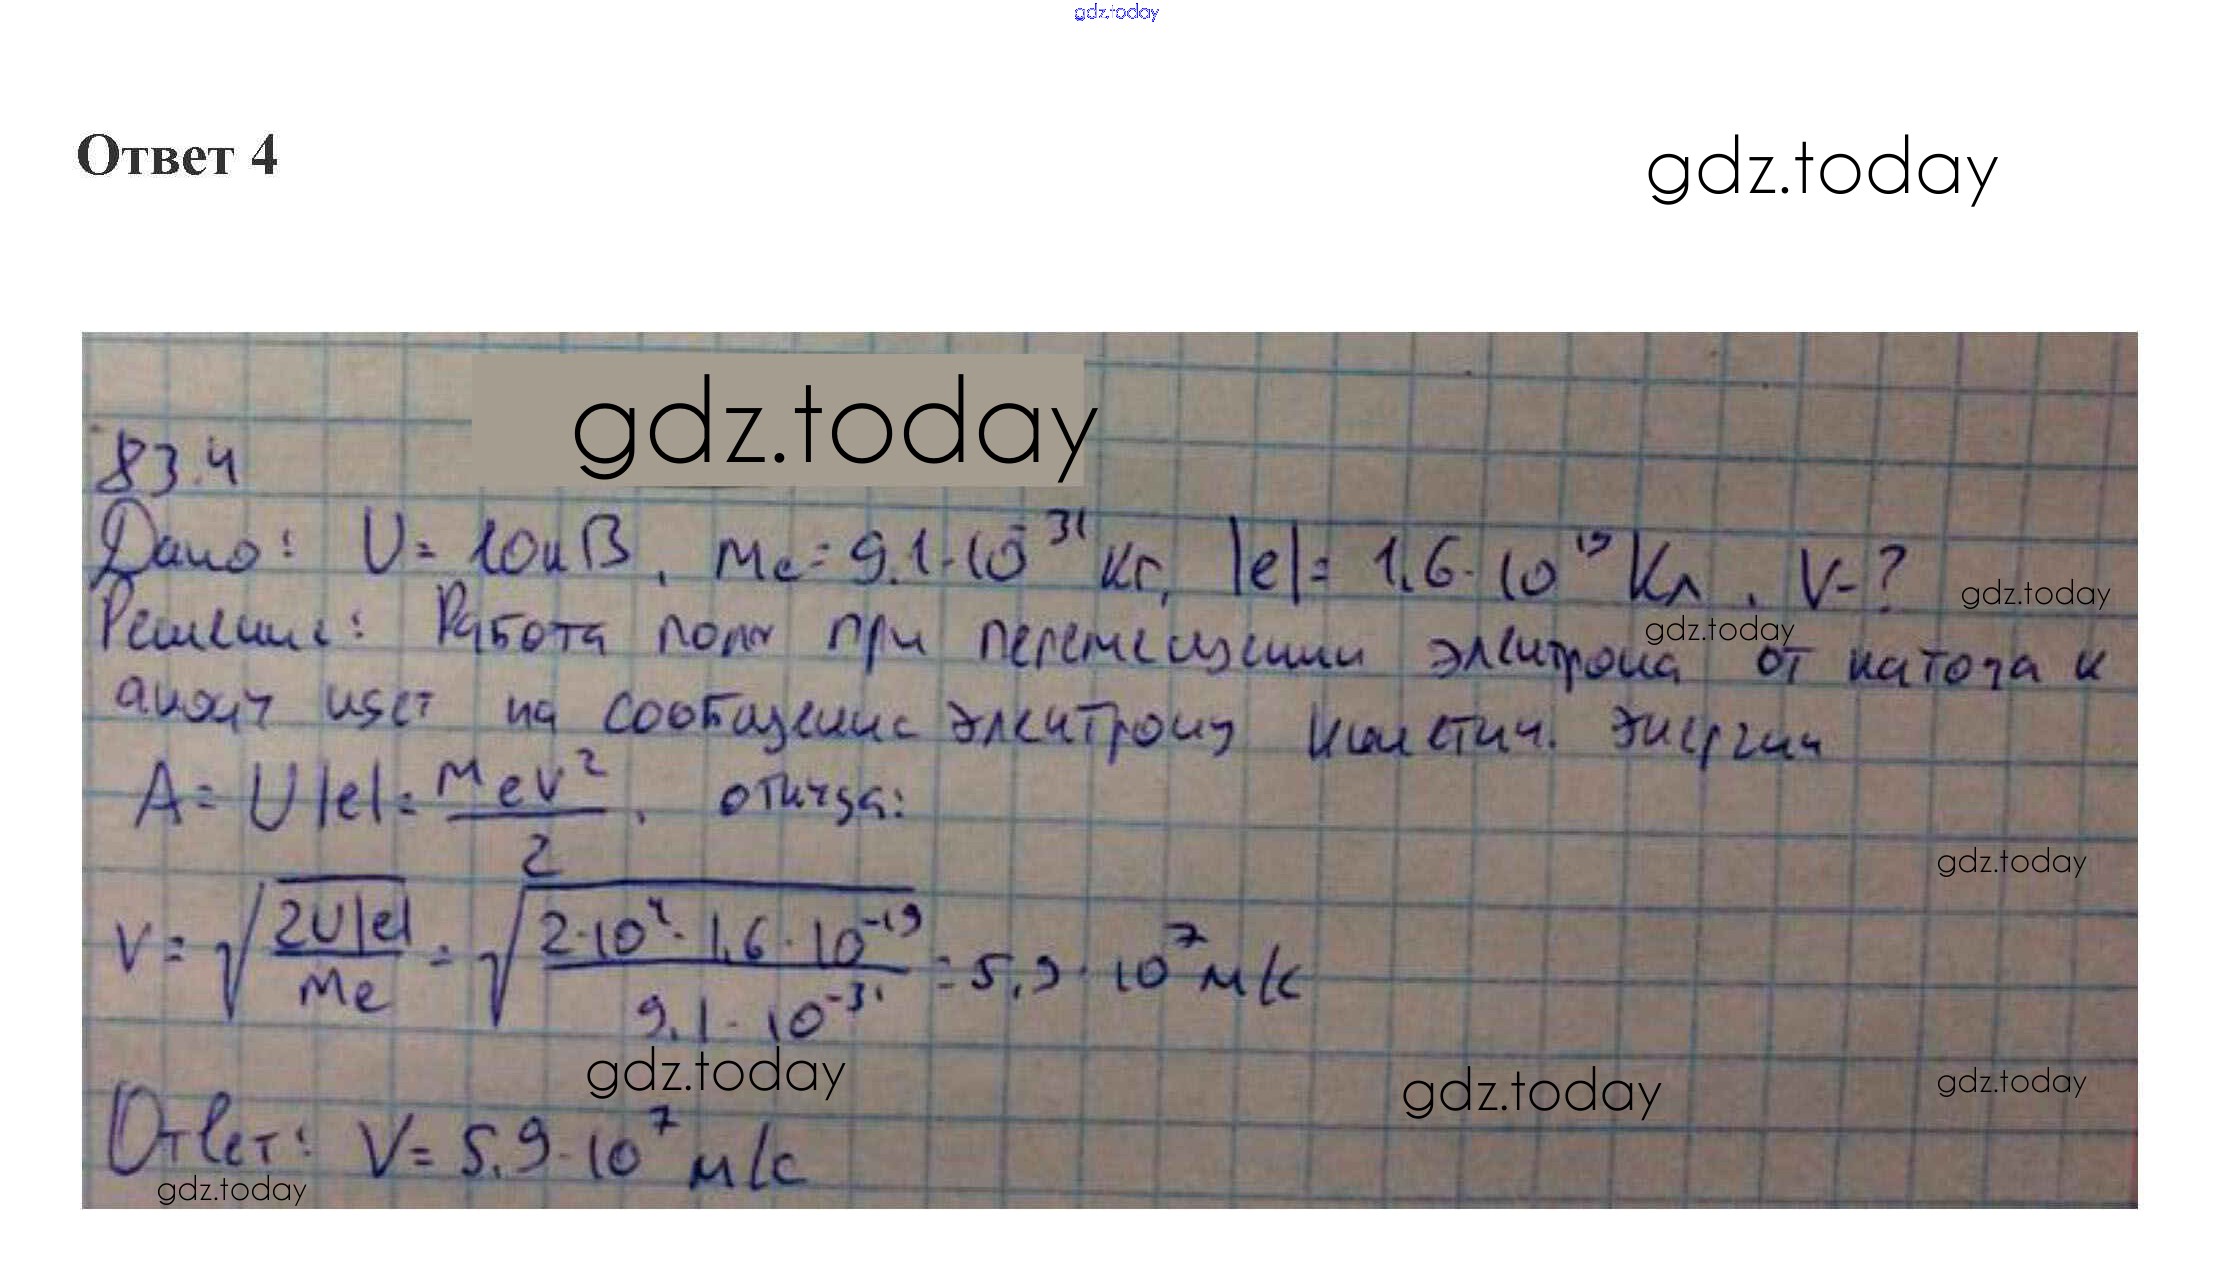 gdz.today
Ответ 4
gdz.today
gdz.today
83.4
Дано: U = 10кВ, me = 9.1·10⁻³¹ кг, |e| = 1,6·10¹⁹ Кл. V-?
gdz.today
gdz.today
Решение: Работа поля при перемещении электрона от катода к
аноду идет на сообщение электрону кинетич. энергии
A = U|e| = mev²/2, откуда:
gdz.today
V = √(2U|e|/me) = √(2·10⁴·1,6·10⁻¹⁹/9.1·10⁻³¹) = 5,9·10⁷ м/с
gdz.today
gdz.today
gdz.today
Ответ: V = 5,9·10⁷ м/с
gdz.today